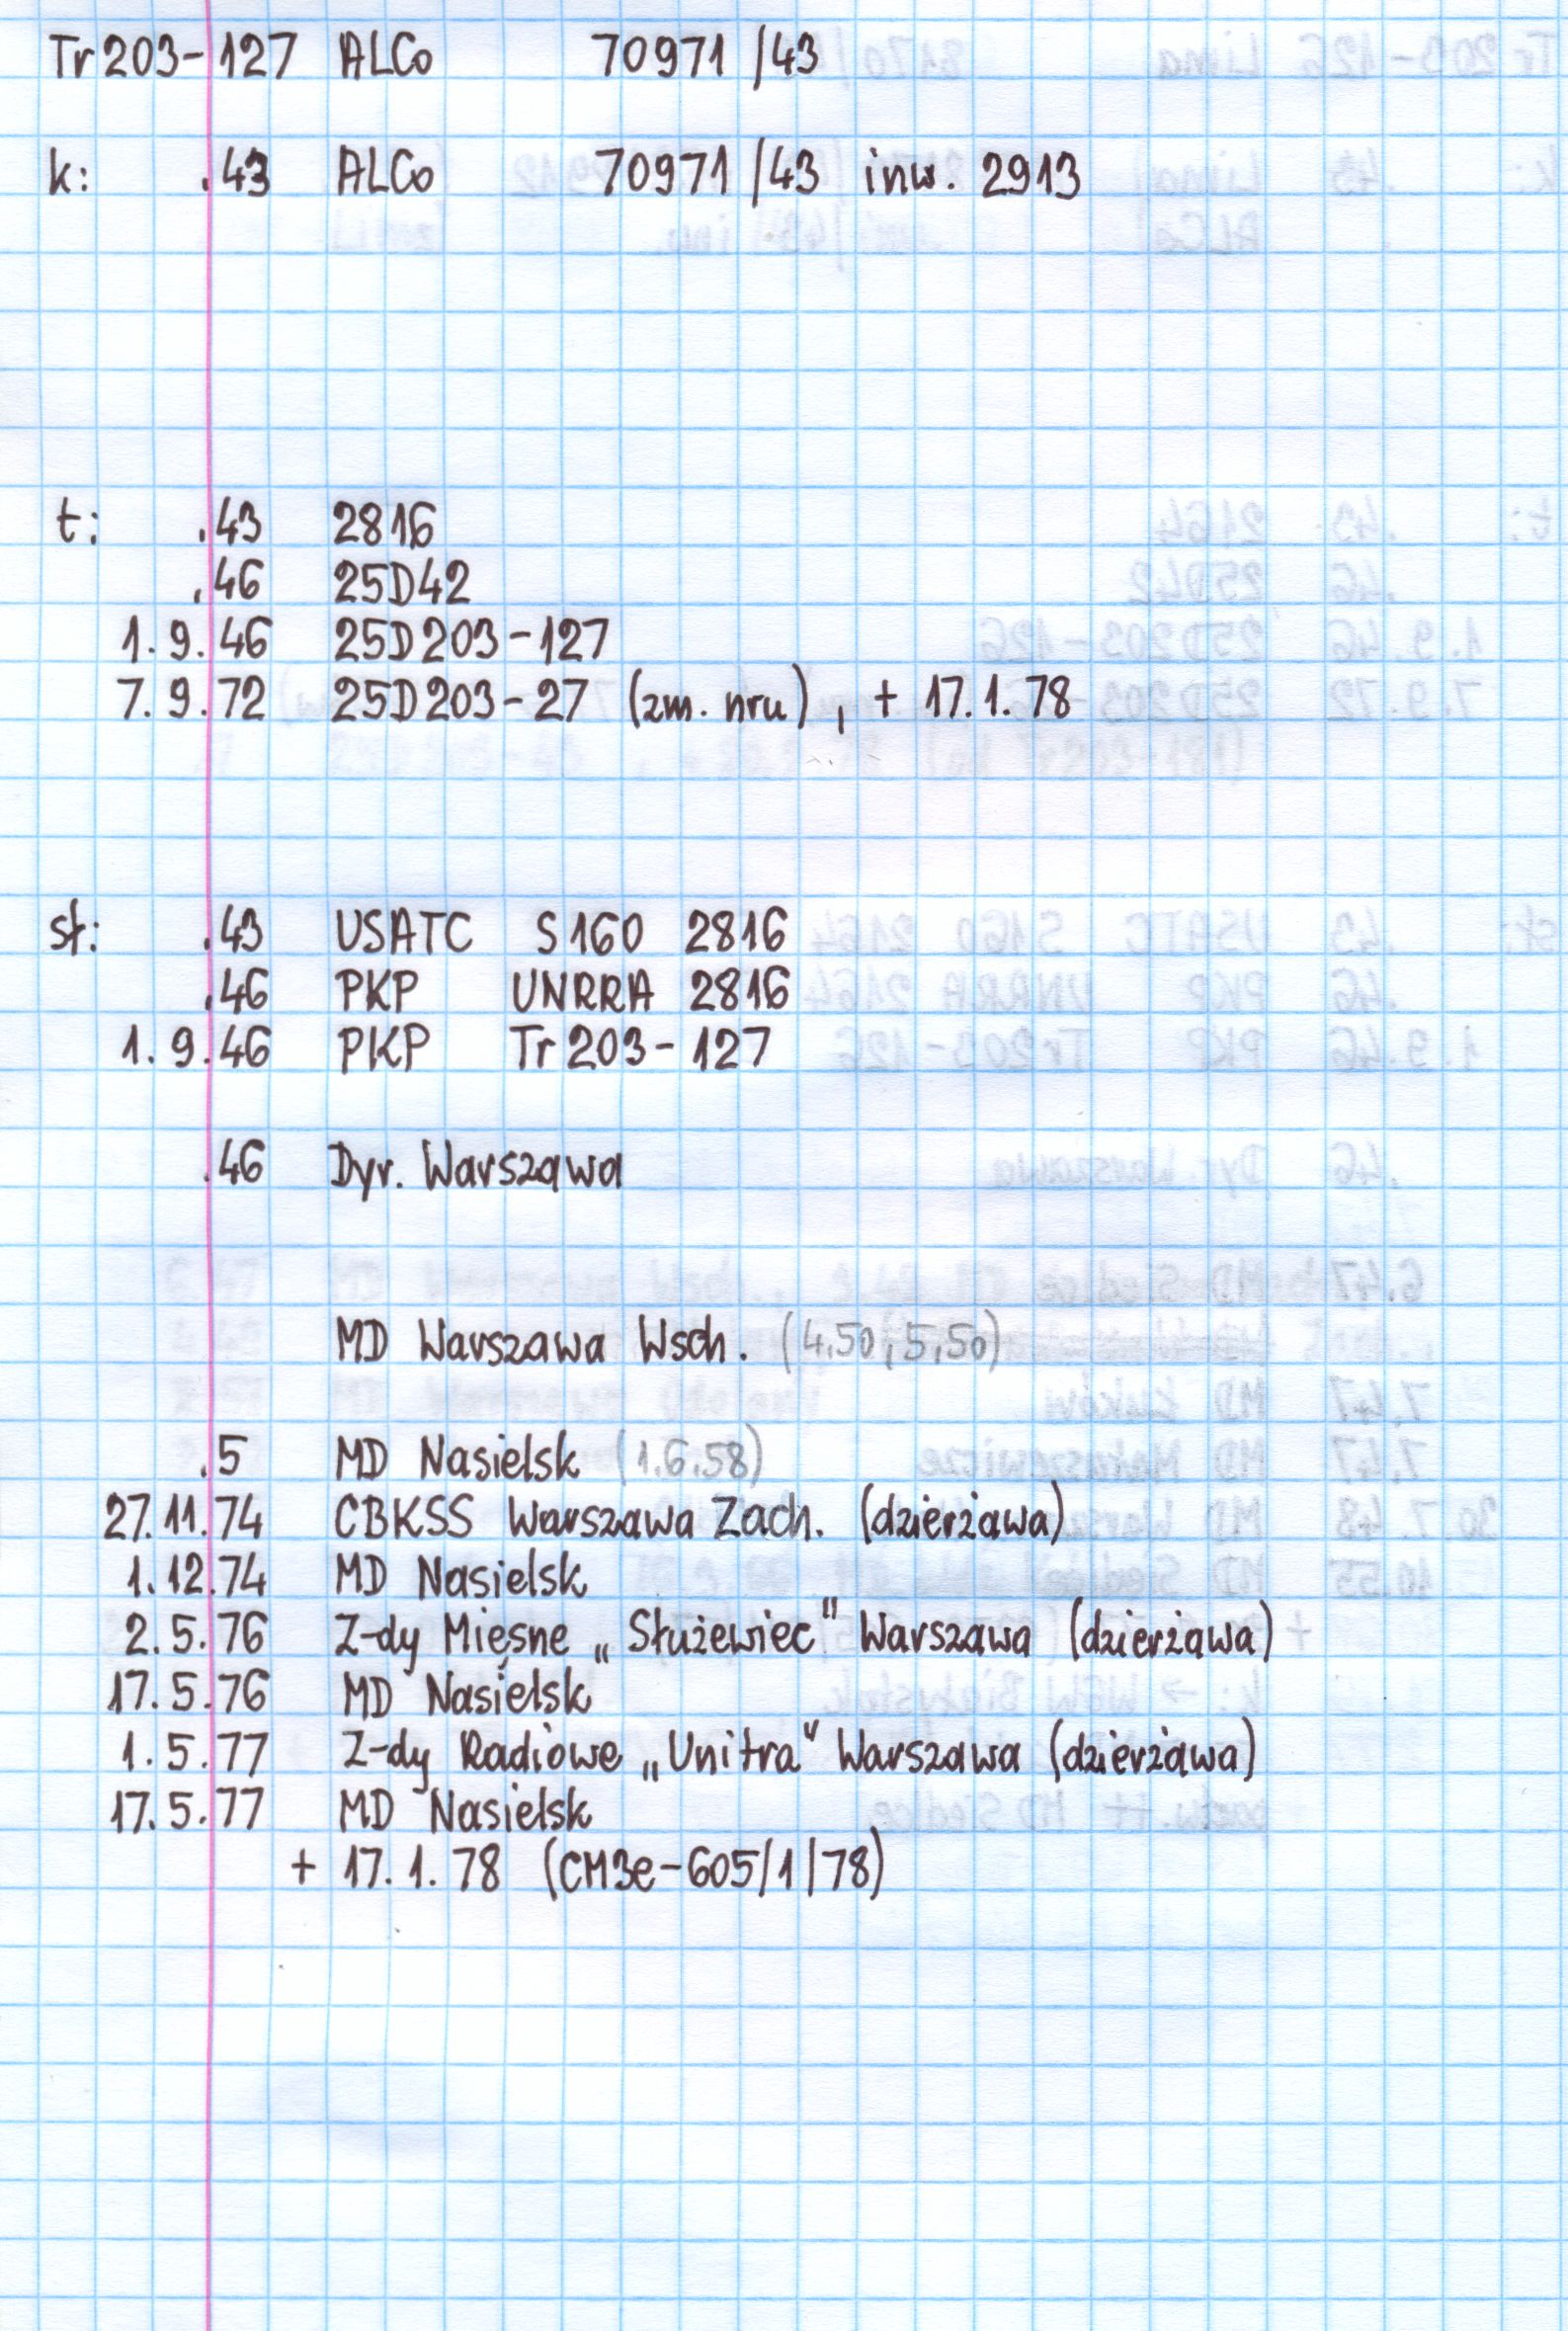 Tr203-127 ALCo 70971/43
k: .43 ALCo 70971/43 inw. 2913
t: .43 2816
.46 25D42
1.9.46 25D203-127
7.9.72 25D203-27 (zm. nru), + 17.1.78
st: .43 USATC S160 2816
.46 PKP UNRRA 2816
1.9.46 PKP Tr203-127
.46 Dyr. Warszawa
MD Warszawa Wsch. (4.50, 5.50)
.5 MD Nasielsk (1.6.58)
27.11.74 CBKSS Warszawa Zach. (dzierżawa)
1.12.74 MD Nasielsk
2.5.76 Z-dy Mięsne „Służewiec" Warszawa (dzierżawa)
17.5.76 MD Nasielsk
1.5.77 Z-dy Radiowe „Unitra" Warszawa (dzierżawa)
17.5.77 MD Nasielsk
+ 17.1.78 (CM3e-605/1/78)